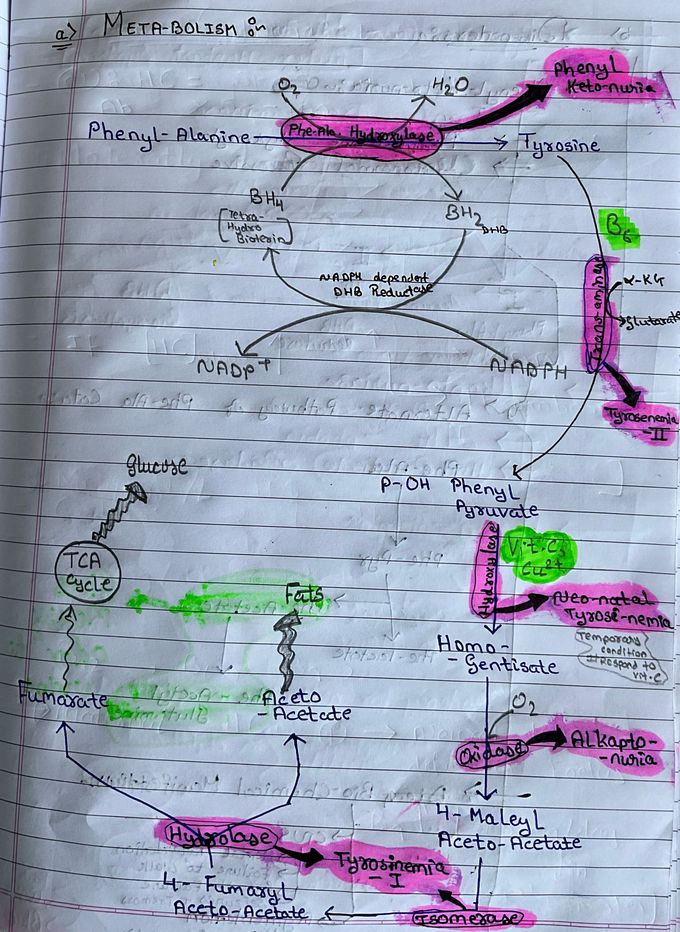 a) META-BOLISM :-
O2
H2O
Phenyl
Keto-nuria
Phenyl-Alanine
Phe-Ala Hydroxylase
Tyrosine
BH4
[Tetra-
Hydro
Bioterin]
BH2 DHB
B6
NADPH dependent
DHB Reductase
Trans-aminase
α-KG
Glutarate
NADP+
NADPH
Tyrosenemia
-II
P-OH Phenyl
Pyruvate
Glucose
TCA
cycle
Hydroxylase
Vit.C,
Cu2+
Fats
Neo-natal
Tyrosi-nemia
Temporary
condition
respond to
vit.C
Homo-
-Gentisate
Fumarate
Aceto
-Acetate
O2
Oxidase
Alkapto-
-nuria
4-Maleyl
Aceto-Acetate
Hydrolase
Tyrosinemia
-I
4-Fumaryl
Aceto-Acetate
Isomerase